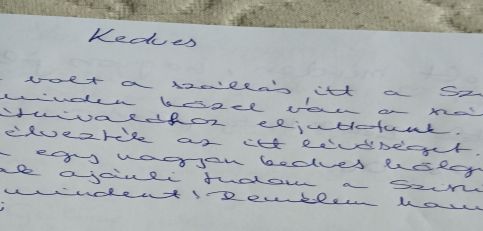 Kedves
volt a szállás itt a Sz
minden közel van a
eljutottunk.
élvezték az itt
egy nagyon kedves hölgy
ajánli tudom a Szin
mindent! Remélem ham